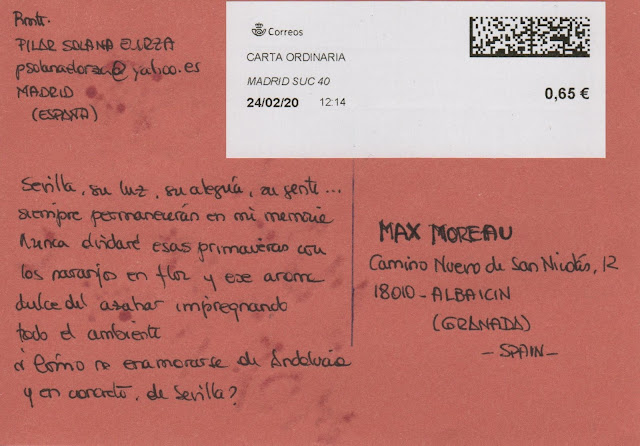 Rmte.
PILAR SOLANA ELORZA
@yahoo.es
MADRID
(ESPAÑA)
Correos
CARTA ORDINARIA
MADRID SUC 40
24/02/20 12:14
0,65 €
Sevilla, su luz, su alegría, su gente...
siempre permanecerán en mi memoria
Nunca olvidaré esas primaveras con
los naranjos en flor y ese aroma
dulce del azahar impregnando
todo el ambiente
¿Cómo no enamorarse de Andalucía
y en concreto, de Sevilla?
MAX MOREAU
Camino Nuevo de San Nicolás, 12
18010 - ALBAICIN
(GRANADA)
- SPAIN -